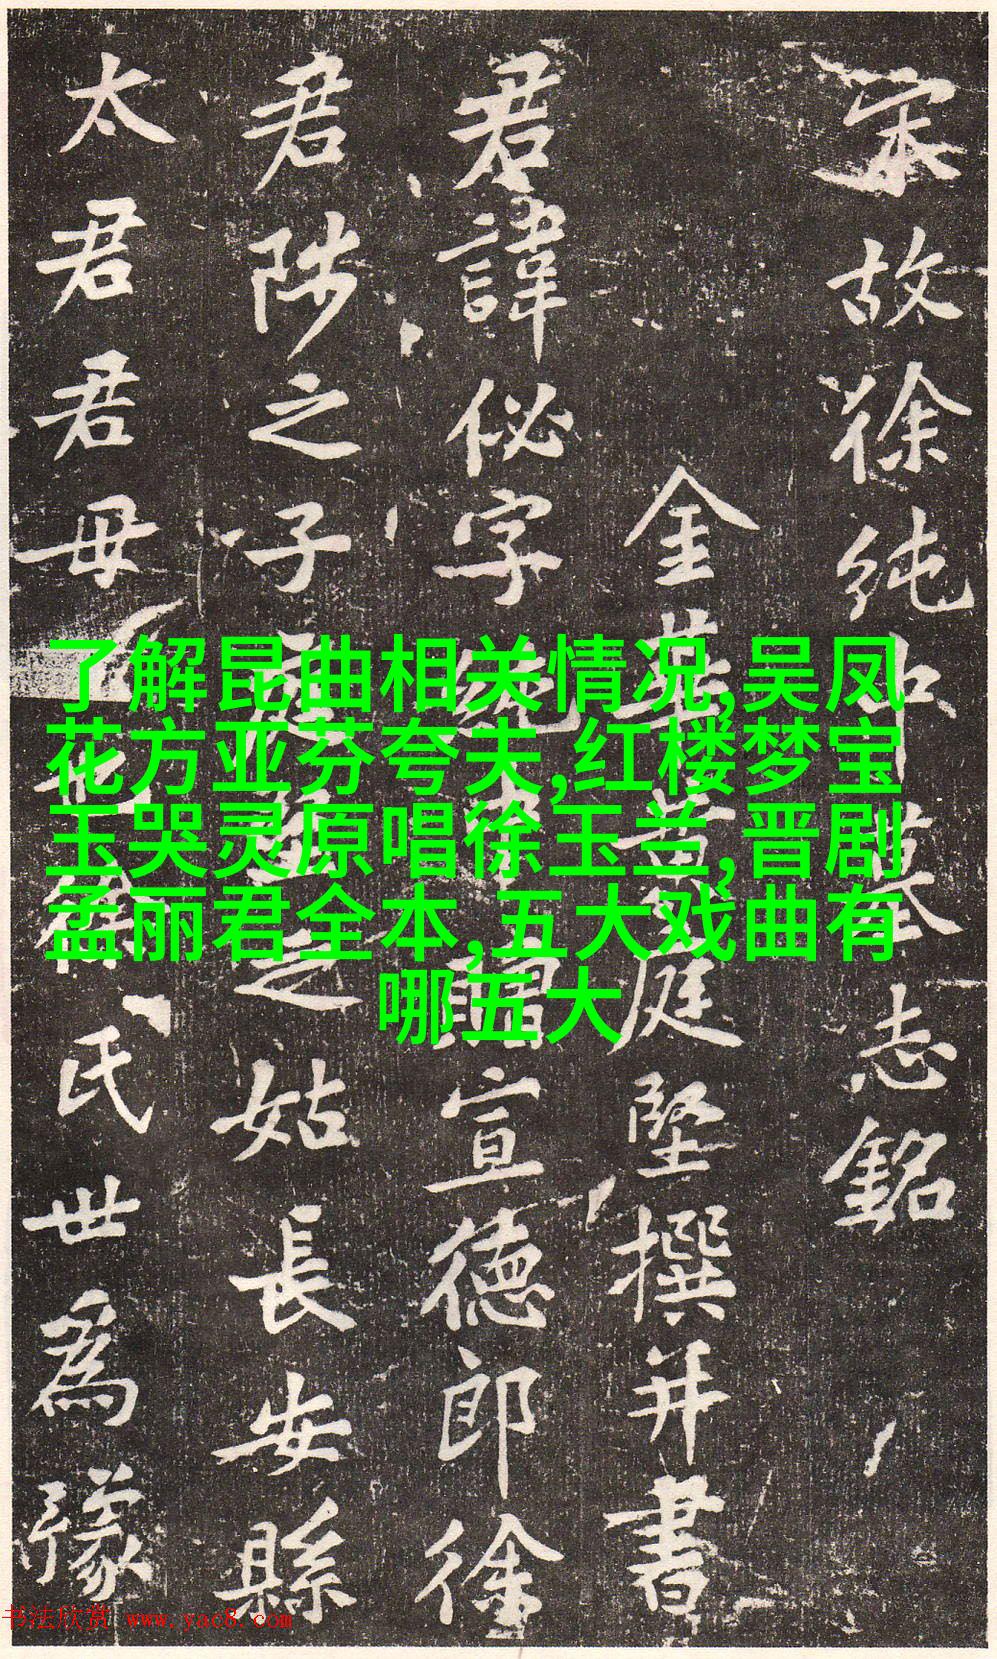 宋故徐纯中墓志銘
金華黄庭堅撰并書
君諱佖字純宣德郎徐
君陟之子庭堅之姑長安縣
太君君母氏世為豫
了解昆曲相关情况,吴凤
花方亚芬夸夫,红楼梦宝
玉哭灵原唱徐玉兰,晋剧
孟丽君全本,五大戏曲有
哪五大
书法欣赏 www.yac8.com